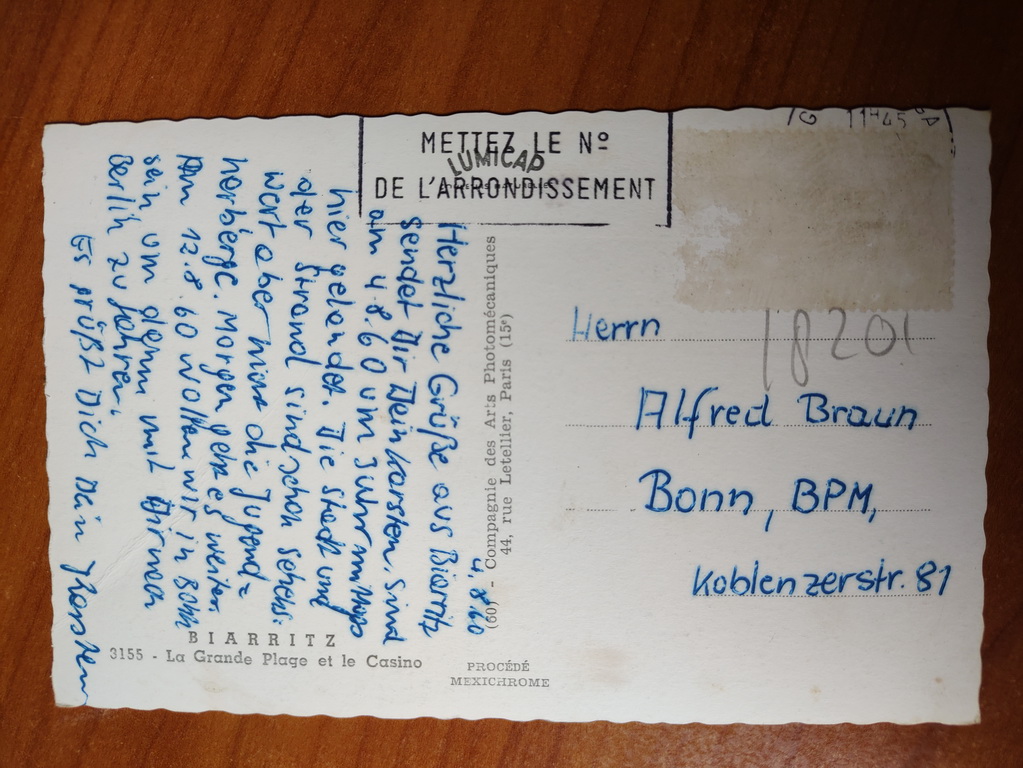 G 11H45
METTEZ LE Nº
LUMICAP
DE L'ARRONDISSEMENT
4.8.60
Herzliche Grüße aus Biarritz
sendet Dir Dein Karsten. Sind
am 4.8.60 um 3 Uhr mittags
hier gelandet. Die Stadt und
der Strand sind schon sehens-
wert aber nicht die Jugend=
herberge. Morgen geht es weiter.
Am 12.8.60 wollen wir in Bonn
sein um dann mit Dir nach
Berlin zu fahren.
Es grüßt Dich Dein
(60) - Compagnie des Arts Photomécaniques
44, rue Letellier, Paris (15e)
18201
Herrn
Alfred Braun
Bonn, BPM,
Koblenzerstr. 81
BIARRITZ
3155 - La Grande Plage et le Casino
PROCÉDÉ
MEXICHROME